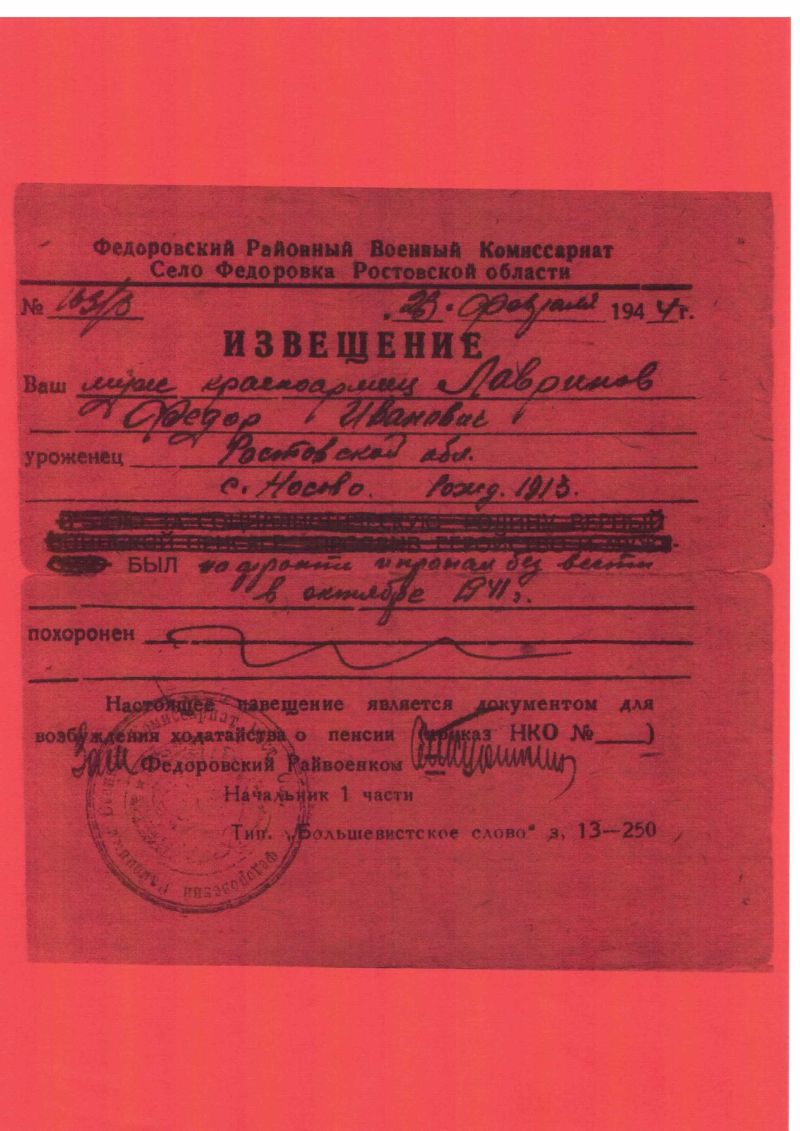 Федоровский Районный Военный Комиссариат
Село Федоровка Ростовской области
№ „ 29 “ февраля 1944 г.
ИЗВЕЩЕНИЕ
Ваш муж красноармиец Лавринов
Федор Иванович
уроженец Ростовской обл.
с. Носово. Рожд. 1913.
В БОЮ ЗА СОЦИАЛИСТИЧЕСКУЮ РОДИНУ, ВЕРНЫЙ
БЫЛ на фронте и пропал без вести
в октябре 1941 г.
похоронен
Настоящее извещение является документом для
возбуждения ходатайства о пенсии (приказ НКО № )
Федоровский Райвоенком
Начальник 1 части
Тип. „Большевистское слово“ з, 13—250